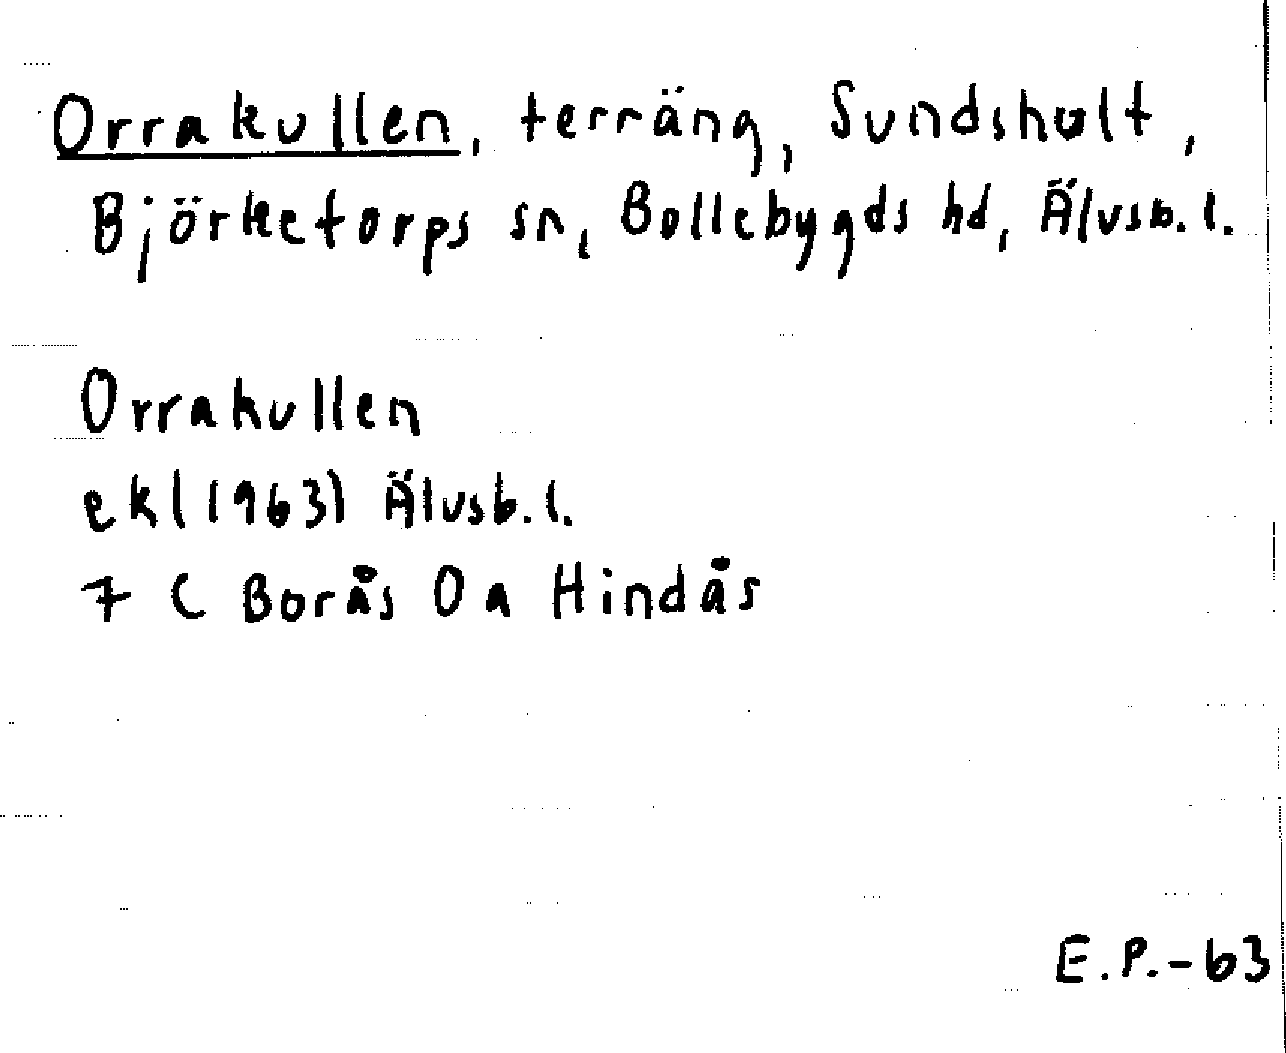 Orrakullen, terräng, Sundshult,
Björketorps sn, Bollebygds hd, Älvsb. l.
Orrakullen
ekl (1963) Älvsb. l.
7 C Borås 0 a Hindås
E.P.-63